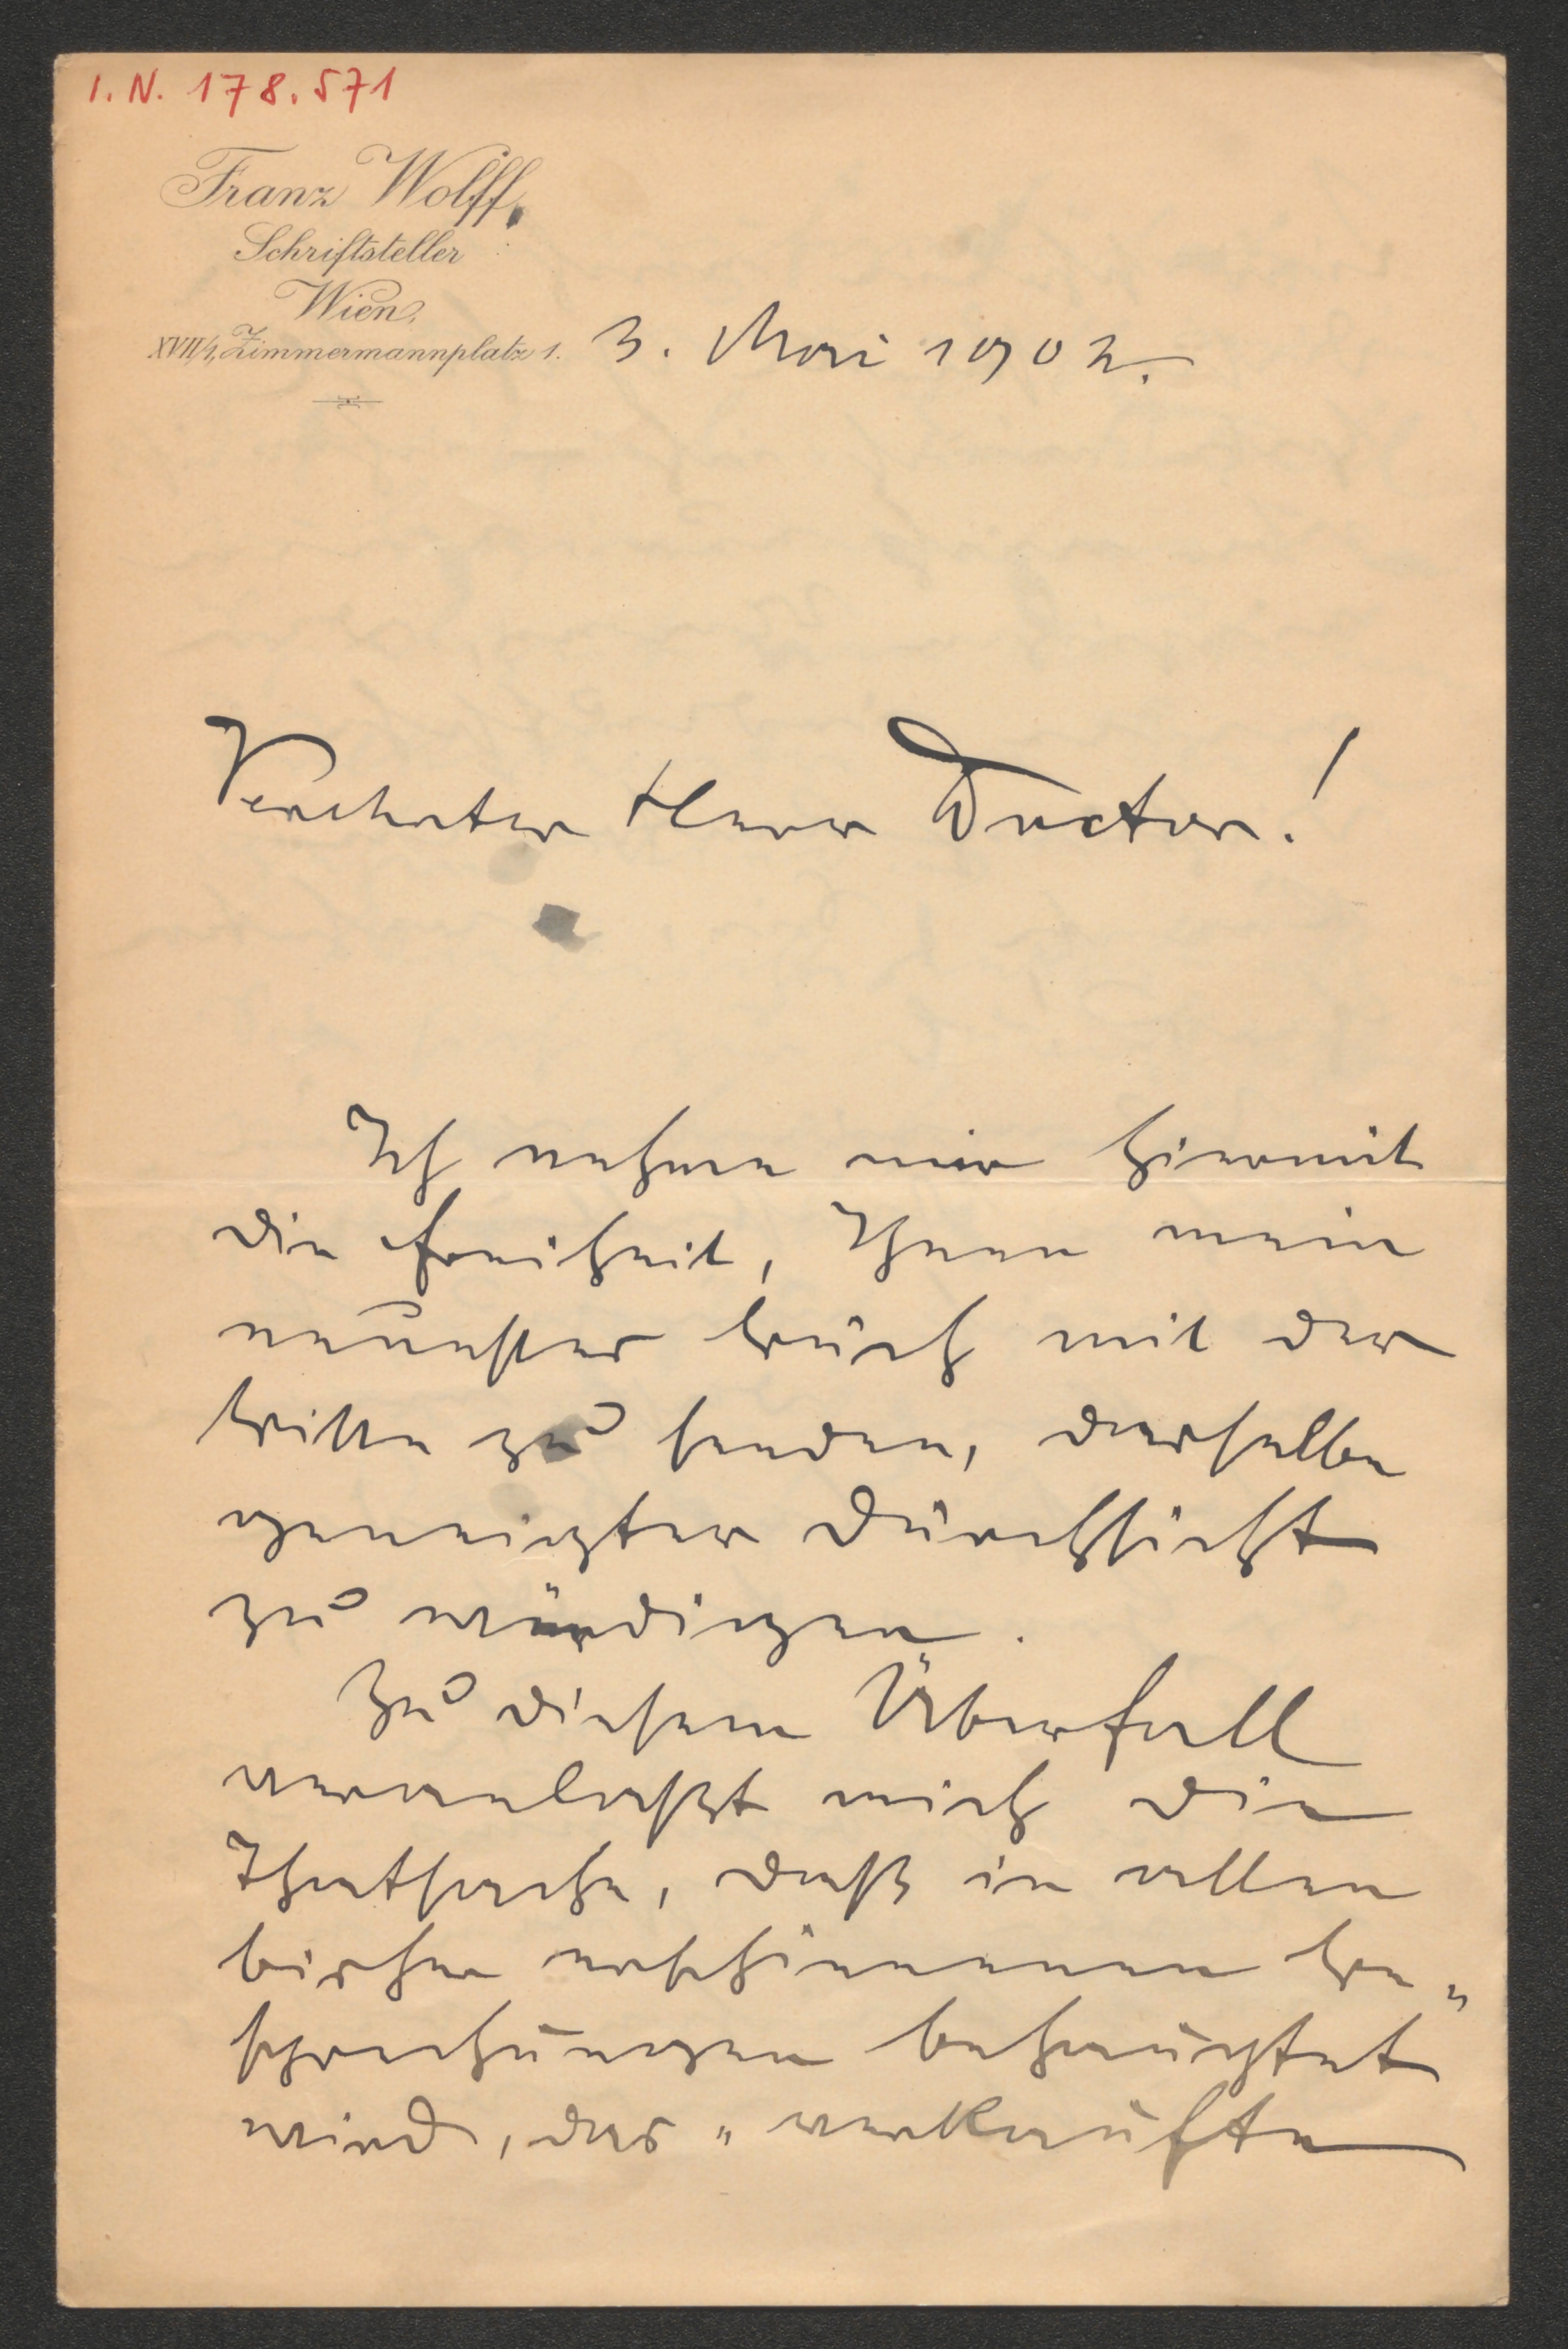 I. N. 178.571
Franz Wolff,
Schriftsteller
Wien,
XVII/1, Zimmermannplatz 1.
3. Mai 1902.
Verehrter Herr Doctor!
Ich nehme mir hiermit
die Freiheit, Ihnen mein
neuestes Buch mit der
Bitte zu senden, dasselbe
geneigter Durchsicht
zu würdigen.
Zu diesem Überfall
veranlaßt mich die
Thatsache, daß in allen
bisher erschienenen Be„
sprechungen behauptet
wird, das „verkaufte